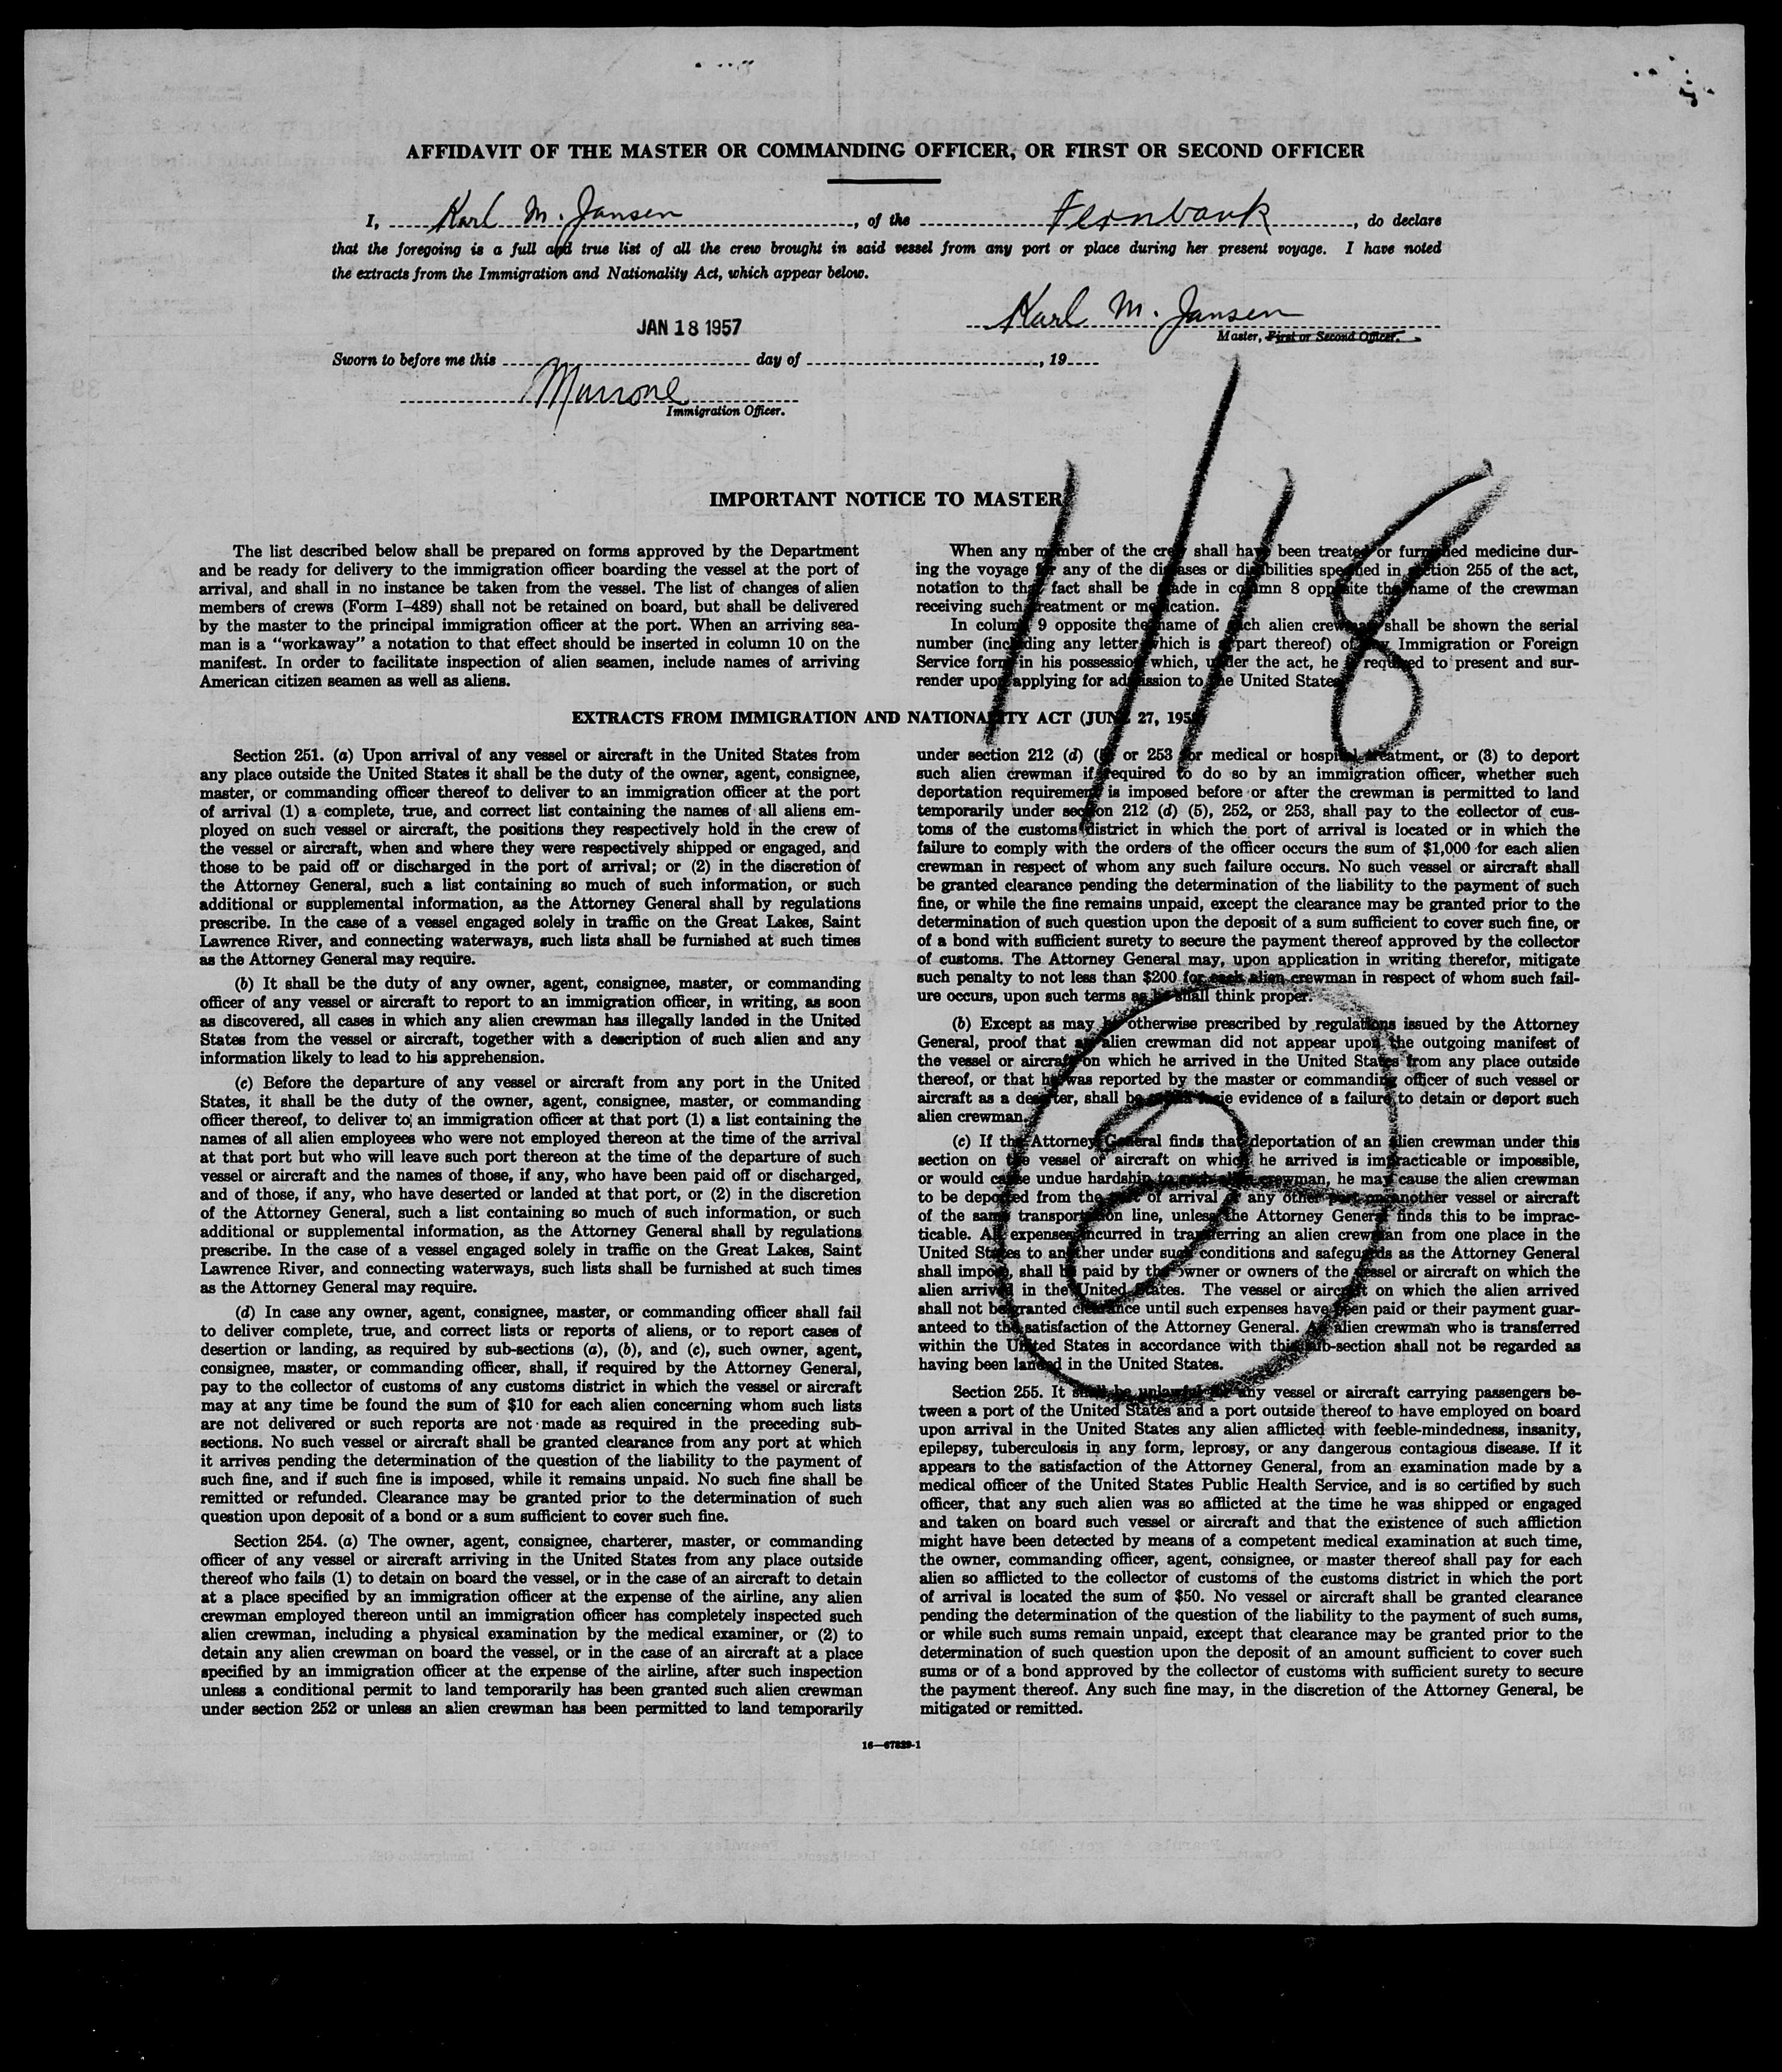 AFFIDAVIT OF THE MASTER OR COMMANDING OFFICER, OR FIRST OR SECOND OFFICER
I, Karl M. Jansen, of the Fernbank, do declare
that the foregoing is a full and true list of all the crew brought in said vessel from any port or place during her present voyage. I have noted
the extracts from the Immigration and Nationality Act, which appear below.
Karl M. Jansen
Master, First or Second Officer.
JAN 18 1957
Sworn to before me this day of , 19
Immigration Officer.
1/18
2
IMPORTANT NOTICE TO MASTER
The list described below shall be prepared on forms approved by the Department
and be ready for delivery to the immigration officer boarding the vessel at the port of
arrival, and shall in no instance be taken from the vessel. The list of changes of alien
members of crews (Form I-489) shall not be retained on board, but shall be delivered
by the master to the principal immigration officer at the port. When an arriving sea-
man is a "workaway" a notation to that effect should be inserted in column 10 on the
manifest. In order to facilitate inspection of alien seamen, include names of arriving
American citizen seamen as well as aliens.
When any member of the crew shall have been treated or furnished medicine dur-
ing the voyage for any of the diseases or disabilities specified in section 255 of the act,
notation to that fact shall be made in column 8 opposite the name of the crewman
receiving such treatment or medication.
In column 9 opposite the name of each alien crewman shall be shown the serial
number (including any letter which is a part thereof) of any Immigration or Foreign
Service form in his possession which, under the act, he is required to present and sur-
render upon applying for admission to the United States.
EXTRACTS FROM IMMIGRATION AND NATIONALITY ACT (JUNE 27, 1952)
Section 251. (a) Upon arrival of any vessel or aircraft in the United States from
any place outside the United States it shall be the duty of the owner, agent, consignee,
master, or commanding officer thereof to deliver to an immigration officer at the port
of arrival (1) a complete, true, and correct list containing the names of all aliens em-
ployed on such vessel or aircraft, the positions they respectively hold in the crew of
the vessel or aircraft, when and where they were respectively shipped or engaged, and
those to be paid off or discharged in the port of arrival; or (2) in the discretion of
the Attorney General, such a list containing so much of such information, or such
additional or supplemental information, as the Attorney General shall by regulations
prescribe. In the case of a vessel engaged solely in traffic on the Great Lakes, Saint
Lawrence River, and connecting waterways, such lists shall be furnished at such times
as the Attorney General may require.
(b) It shall be the duty of any owner, agent, consignee, master, or commanding
officer of any vessel or aircraft to report to an immigration officer, in writing, as soon
as discovered, all cases in which any alien crewman has illegally landed in the United
States from the vessel or aircraft, together with a description of such alien and any
information likely to lead to his apprehension.
(c) Before the departure of any vessel or aircraft from any port in the United
States, it shall be the duty of the owner, agent, consignee, master, or commanding
officer thereof, to deliver to an immigration officer at that port (1) a list containing the
names of all alien employees who were not employed thereon at the time of the arrival
at that port but who will leave such port thereon at the time of the departure of such
vessel or aircraft and the names of those, if any, who have been paid off or discharged,
and of those, if any, who have deserted or landed at that port, or (2) in the discretion
of the Attorney General, such a list containing so much of such information, or such
additional or supplemental information, as the Attorney General shall by regulations
prescribe. In the case of a vessel engaged solely in traffic on the Great Lakes, Saint
Lawrence River, and connecting waterways, such lists shall be furnished at such times
as the Attorney General may require.
(d) In case any owner, agent, consignee, master, or commanding officer shall fail
to deliver complete, true, and correct lists or reports of aliens, or to report cases of
desertion or landing, as required by sub-sections (a), (b), and (c), such owner, agent,
consignee, master, or commanding officer, shall, if required by the Attorney General,
pay to the collector of customs of any customs district in which the vessel or aircraft
may at any time be found the sum of $10 for each alien concerning whom such lists
are not delivered or such reports are not made as required in the preceding sub-
sections. No such vessel or aircraft shall be granted clearance from any port at which
it arrives pending the determination of the question of the liability to the payment of
such fine, and if such fine is imposed, while it remains unpaid. No such fine shall be
remitted or refunded. Clearance may be granted prior to the determination of such
question upon deposit of a bond or a sum sufficient to cover such fine.
Section 254. (a) The owner, agent, consignee, charterer, master, or commanding
officer of any vessel or aircraft arriving in the United States from any place outside
thereof who fails (1) to detain on board the vessel, or in the case of an aircraft to detain
at a place specified by an immigration officer at the expense of the airline, any alien
crewman employed thereon until an immigration officer has completely inspected such
alien crewman, including a physical examination by the medical examiner, or (2) to
detain any alien crewman on board the vessel, or in the case of an aircraft at a place
specified by an immigration officer at the expense of the airline, after such inspection
unless a conditional permit to land temporarily has been granted such alien crewman
under section 252 or unless an alien crewman has been permitted to land temporarily
under section 212 (d) (5) or 253 for medical or hospital treatment, or (3) to deport
such alien crewman if required to do so by an immigration officer, whether such
deportation requirement is imposed before or after the crewman is permitted to land
temporarily under section 212 (d) (5), 252, or 253, shall pay to the collector of cus-
toms of the customs district in which the port of arrival is located or in which the
failure to comply with the orders of the officer occurs the sum of $1,000 for each alien
crewman in respect of whom any such failure occurs. No such vessel or aircraft shall
be granted clearance pending the determination of the liability to the payment of such
fine, or while the fine remains unpaid, except the clearance may be granted prior to the
determination of such question upon the deposit of a sum sufficient to cover such fine, or
of a bond with sufficient surety to secure the payment thereof approved by the collector
of customs. The Attorney General may, upon application in writing therefor, mitigate
such penalty to not less than $200 for each alien crewman in respect of whom such fail-
ure occurs, upon such terms as he shall think proper.
(b) Except as may be otherwise prescribed by regulations issued by the Attorney
General, proof that an alien crewman did not appear upon the outgoing manifest of
the vessel or aircraft on which he arrived in the United States from any place outside
thereof, or that he was reported by the master or commanding officer of such vessel or
aircraft as a deserter, shall be prima facie evidence of a failure to detain or deport such
alien crewman.
(c) If the Attorney General finds that deportation of an alien crewman under this
section on the vessel or aircraft on which he arrived is impracticable or impossible,
or would cause undue hardship to such alien crewman, he may cause the alien crewman
to be deported from the port of arrival or any other port on another vessel or aircraft
of the same transportation line, unless the Attorney General finds this to be imprac-
ticable. All expenses incurred in transferring an alien crewman from one place in the
United States to another under such conditions and safeguards as the Attorney General
shall impose, shall be paid by the owner or owners of the vessel or aircraft on which the
alien arrived in the United States. The vessel or aircraft on which the alien arrived
shall not be granted clearance until such expenses have been paid or their payment guar-
anteed to the satisfaction of the Attorney General. An alien crewman who is transferred
within the United States in accordance with this sub-section shall not be regarded as
having been landed in the United States.
Section 255. It shall be unlawful for any vessel or aircraft carrying passengers be-
tween a port of the United States and a port outside thereof to have employed on board
upon arrival in the United States any alien afflicted with feeble-mindedness, insanity,
epilepsy, tuberculosis in any form, leprosy, or any dangerous contagious disease. If it
appears to the satisfaction of the Attorney General, from an examination made by a
medical officer of the United States Public Health Service, and is so certified by such
officer, that any such alien was so afflicted at the time he was shipped or engaged
and taken on board such vessel or aircraft and that the existence of such affliction
might have been detected by means of a competent medical examination at such time,
the owner, commanding officer, agent, consignee, or master thereof shall pay for each
alien so afflicted to the collector of customs of the customs district in which the port
of arrival is located the sum of $50. No vessel or aircraft shall be granted clearance
pending the determination of the question of the liability to the payment of such sums,
or while such sums remain unpaid, except that clearance may be granted prior to the
determination of such question upon the deposit of an amount sufficient to cover such
sums or of a bond approved by the collector of customs with sufficient surety to secure
the payment thereof. Any such fine may, in the discretion of the Attorney General, be
mitigated or remitted.
16—67829-1